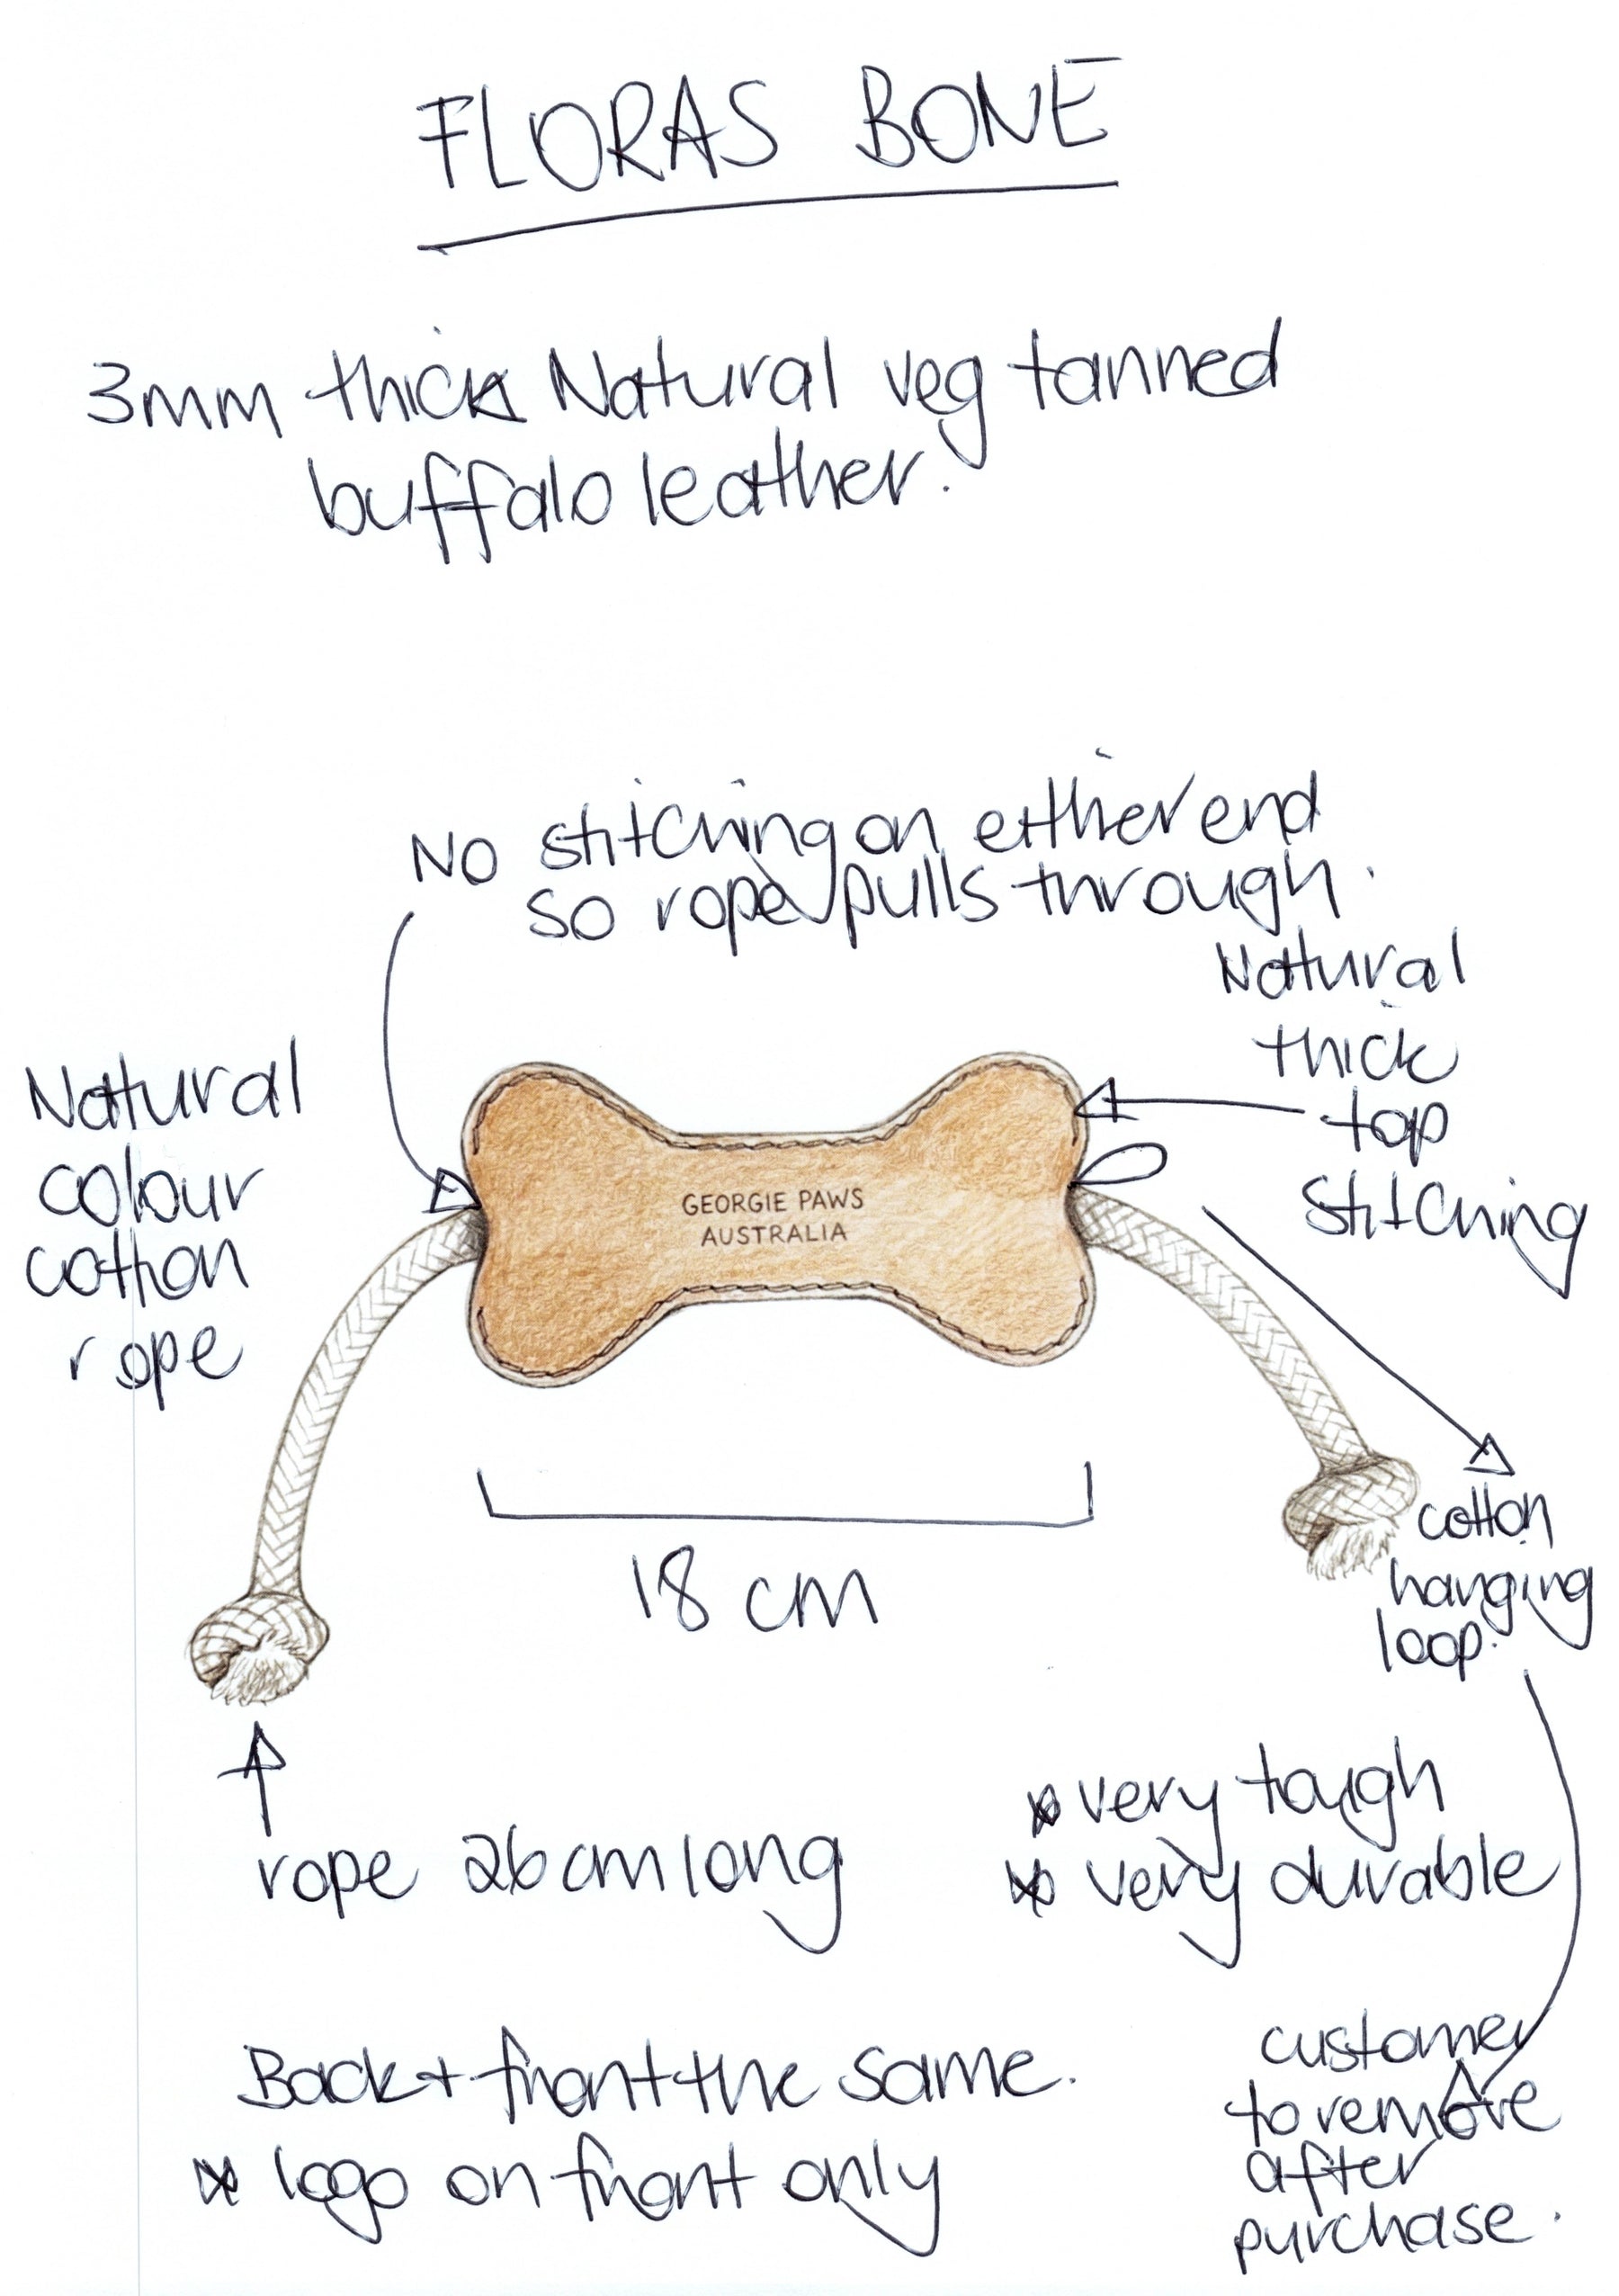 FLORAS BONE
3mm thick Natural veg tanned
buffalo leather.
No stitching on either end
so rope pulls through.
Natural
thick
top
stitching
Natural
colour
cotton
rope
GEORGIE PAWS
AUSTRALIA
18 cm
cotton
hanging
loop.
rope 26cm long
* very tough
* very durable
customer
to remove
after
purchase.
Back + front the same.
* logo on front only